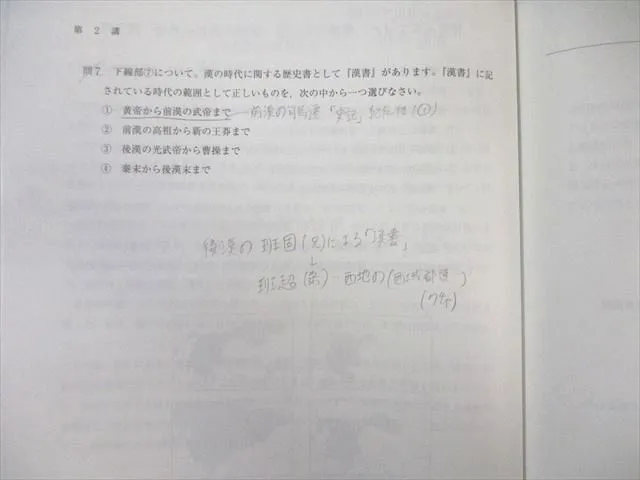 第 2 講
問7 下線部⑦について。漢の時代に関する歴史書として『漢書』があります。『漢書』に記
されている時代の範囲として正しいものを、次の中から一つ選びなさい。
① 黄帝から前漢の武帝まで 前漢の司馬遷「史記」紀伝体
② 前漢の高祖から新の王莽まで
③ 後漢の光武帝から曹操まで
④ 秦末から後漢末まで
後漢の班固(兄)による「漢書」
↓
班超(弟)